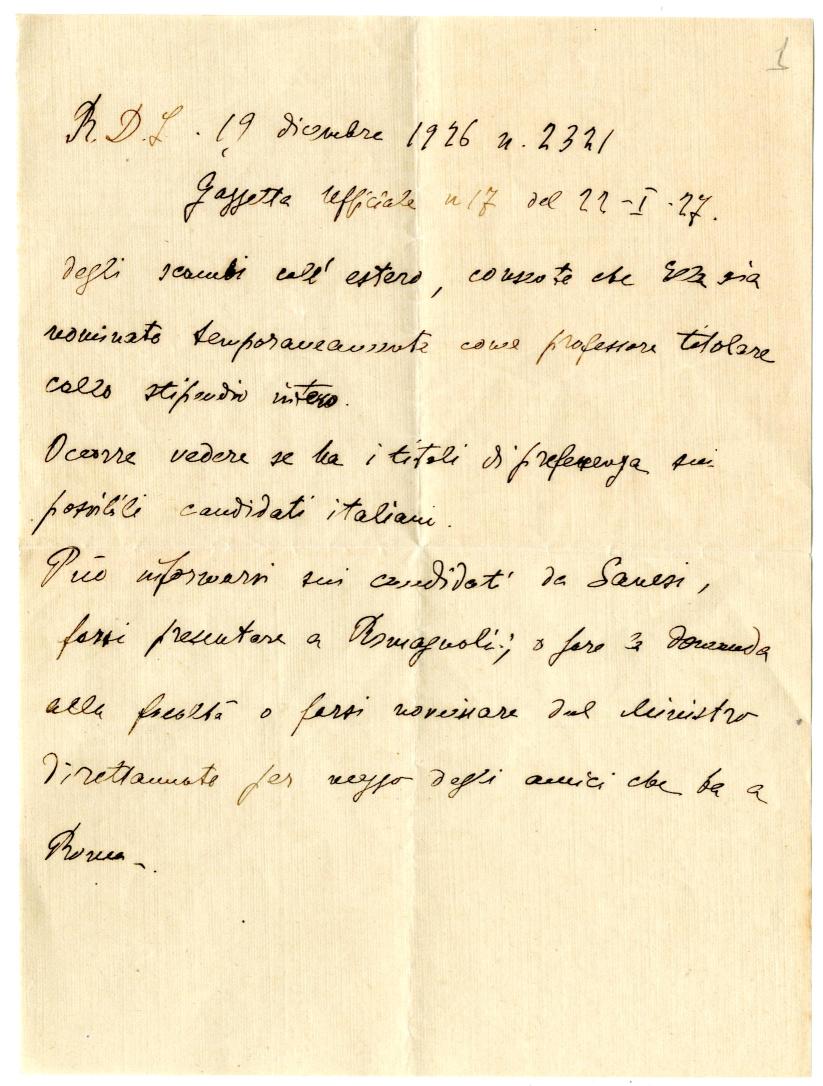 1
R. D. L. 19 dicembre 1926 n. 2321
Gazzetta Ufficiale n 17 del 22-I-27.
degli scambi coll' estero, consente che Ella sia
nominato temporaneamente come professore titolare
collo stipendio intero.
Occorre vedere se ha i titoli di preferenza sui
possibili candidati italiani.
Può informarsi sui candidati da Sanesi,
farsi presentare a Romagnoli; o fare la domanda
alla facoltà o farsi nominare dal Ministro
direttamente per mezzo degli amici che ha a
Roma.